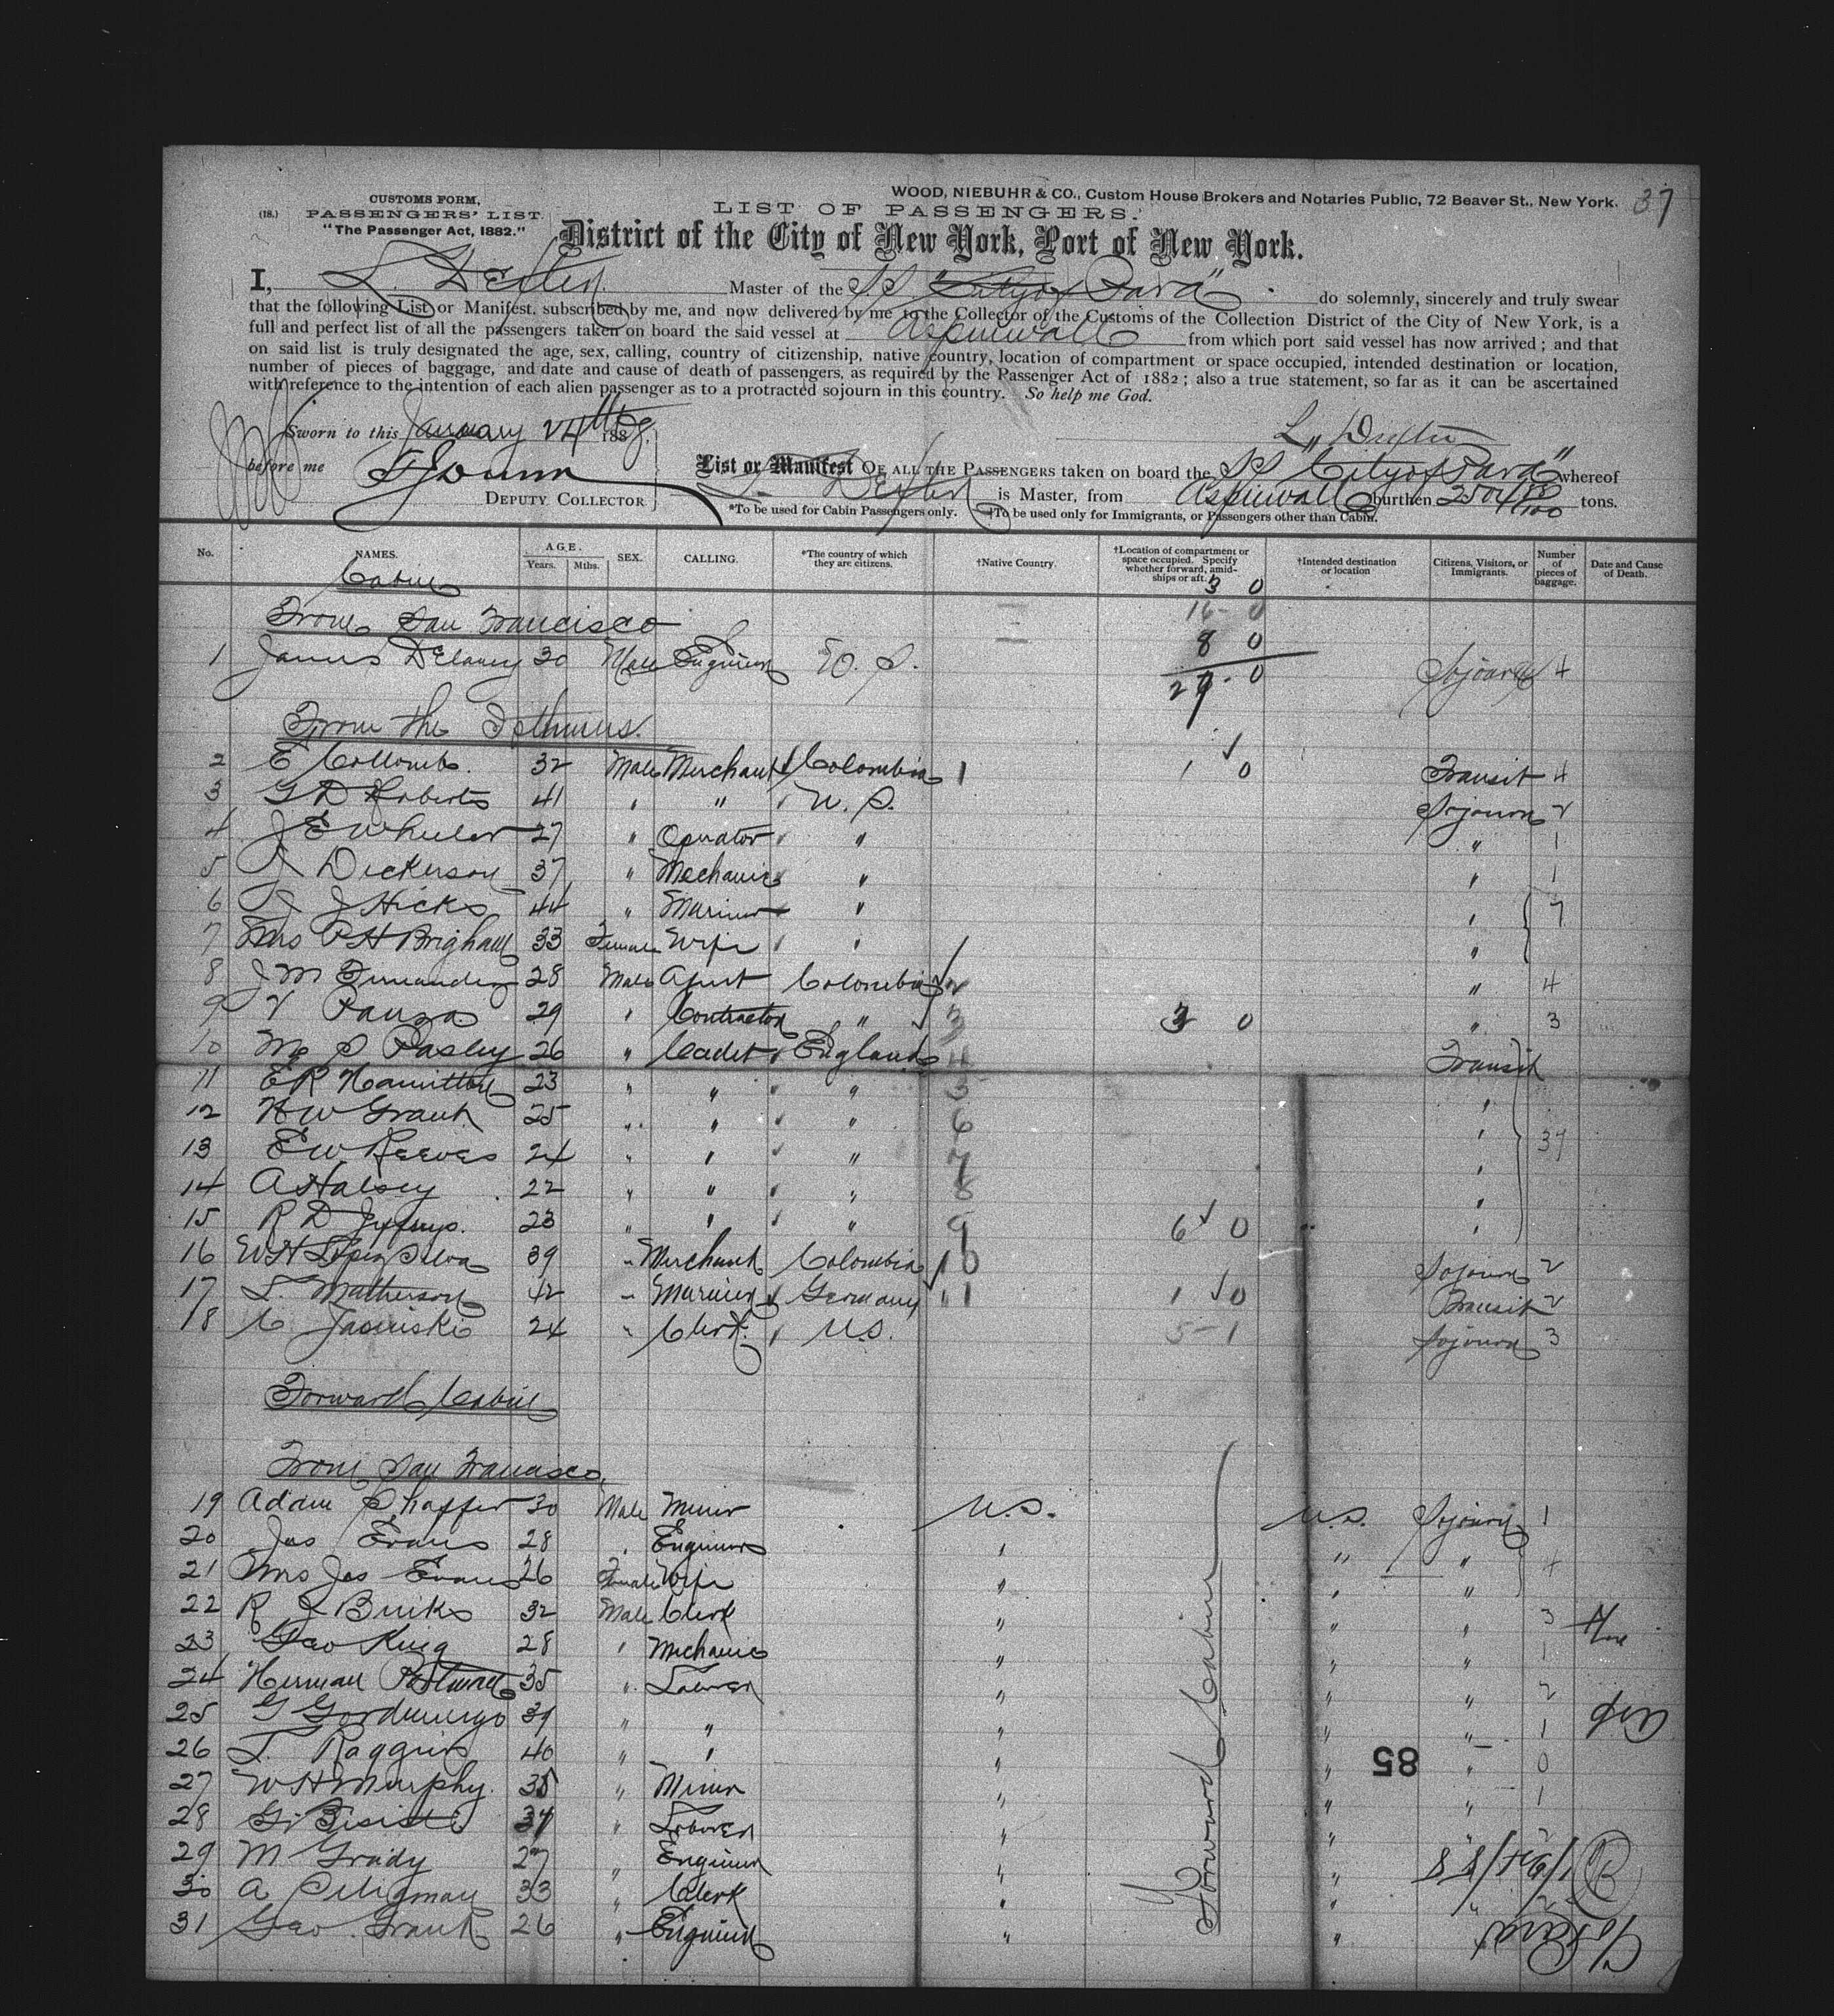 WOOD, NIEBUHR & CO., Custom House Brokers and Notaries Public, 72 Beaver St., New York. 37
CUSTOMS FORM,
(18.) PASSENGERS' LIST.
"The Passenger Act, 1882."
LIST OF PASSENGERS.
District of the City of New York, Port of New York.
I, L. Dexter Master of the SS "City of Para" do solemnly, sincerely and truly swear
that the following List or Manifest, subscribed by me, and now delivered by me to the Collector of the Customs of the Collection District of the City of New York, is a
full and perfect list of all the passengers taken on board the said vessel at Aspinwall from which port said vessel has now arrived; and that
on said list is truly designated the age, sex, calling, country of citizenship, native country, location of compartment or space occupied, intended destination or location,
number of pieces of baggage, and date and cause of death of passengers, as required by the Passenger Act of 1882; also a true statement, so far as it can be ascertained
with reference to the intention of each alien passenger as to a protracted sojourn in this country. So help me God.
Sworn to this January 24th 188
L. Dexter
before me
DEPUTY COLLECTOR
List or Manifest OF ALL THE PASSENGERS taken on board the SS "City of Para" whereof
Dexter is Master, from Aspinwall burthen tons.
*To be used for Cabin Passengers only. †To be used only for Immigrants, or Passengers other than Cabin.
No. NAMES. AGE. Years. Mths. SEX. CALLING. *The country of which they are citizens. †Native Country. †Location of compartment or space occupied. Specify whether forward, amidships or aft. †Intended destination or location Citizens, Visitors, or Immigrants. Number of pieces of baggage. Date and Cause of Death.
Cabin 3 0
From San Francisco 16 - 0
8 0
1 James Delaney 30 Male Engineer U. S. Sojourn 4
27 - 0
From the Isthmus.
2 E Collomb 32 Male Merchant Colombia 1 1 0 Transit 4
3 G D Roberts 41 " " U. S. Sojourn 2
4 J E Wheeler 27 " Operator " " 1
5 Dickerson 37 " Mechanic " " 1
6 J Hicks 44 " Mariner " " 7
7 Mrs P H Brigham 33 Female Wife " "
8 J M Fernandez 28 Male Agent Colombia 2 " 4
9 V Panza 29 " Contractor " 3 3 0 " 3
10 M S Pasley 26 " Cadet England 4 Transit
11 E R Hamilton 23 " " " 5 "
12 H W Grant 25 " " " 6 "
13 E W Reeves 24 " " " 7 "
14 A Halsey 22 " " " 8 "
15 R D Jeffreys 23 " " " 9 6 0 "
16 W H Lopez Silva 39 " Merchant Colombia 10 Sojourn 2
17 L. Matherson 42 " Mariner Germany 11 1 0 Transit 2
18 C Jasinski 24 " Clerk U.S. 5 - 1 Sojourn 3
Forward Cabin
From San Francisco
19 Adam Shaffer 30 Male Miner U.S. U.S. Sojourn 1
20 Jas Evans 28 " Engineer " " " 4
21 Mrs Jas Evans 26 Female Wife " " "
22 R J 32 Male Clerk " " " 3
23 Geo King 28 " Mechanic " " " 1
24 Herman 35 " Laborer " " " 2
25 G 39 " " " " " 1
26 L. Raggins 40 " " " " " 0
27 W H Murphy 35 " Miner " " " 1
28 G. " Laborer " " "
29 M Grady 27 " Engineer " "
30 A Seligman 33 " Clerk " "
31 Geo Grant 26 " Engineer " "
Forward Cabin
85